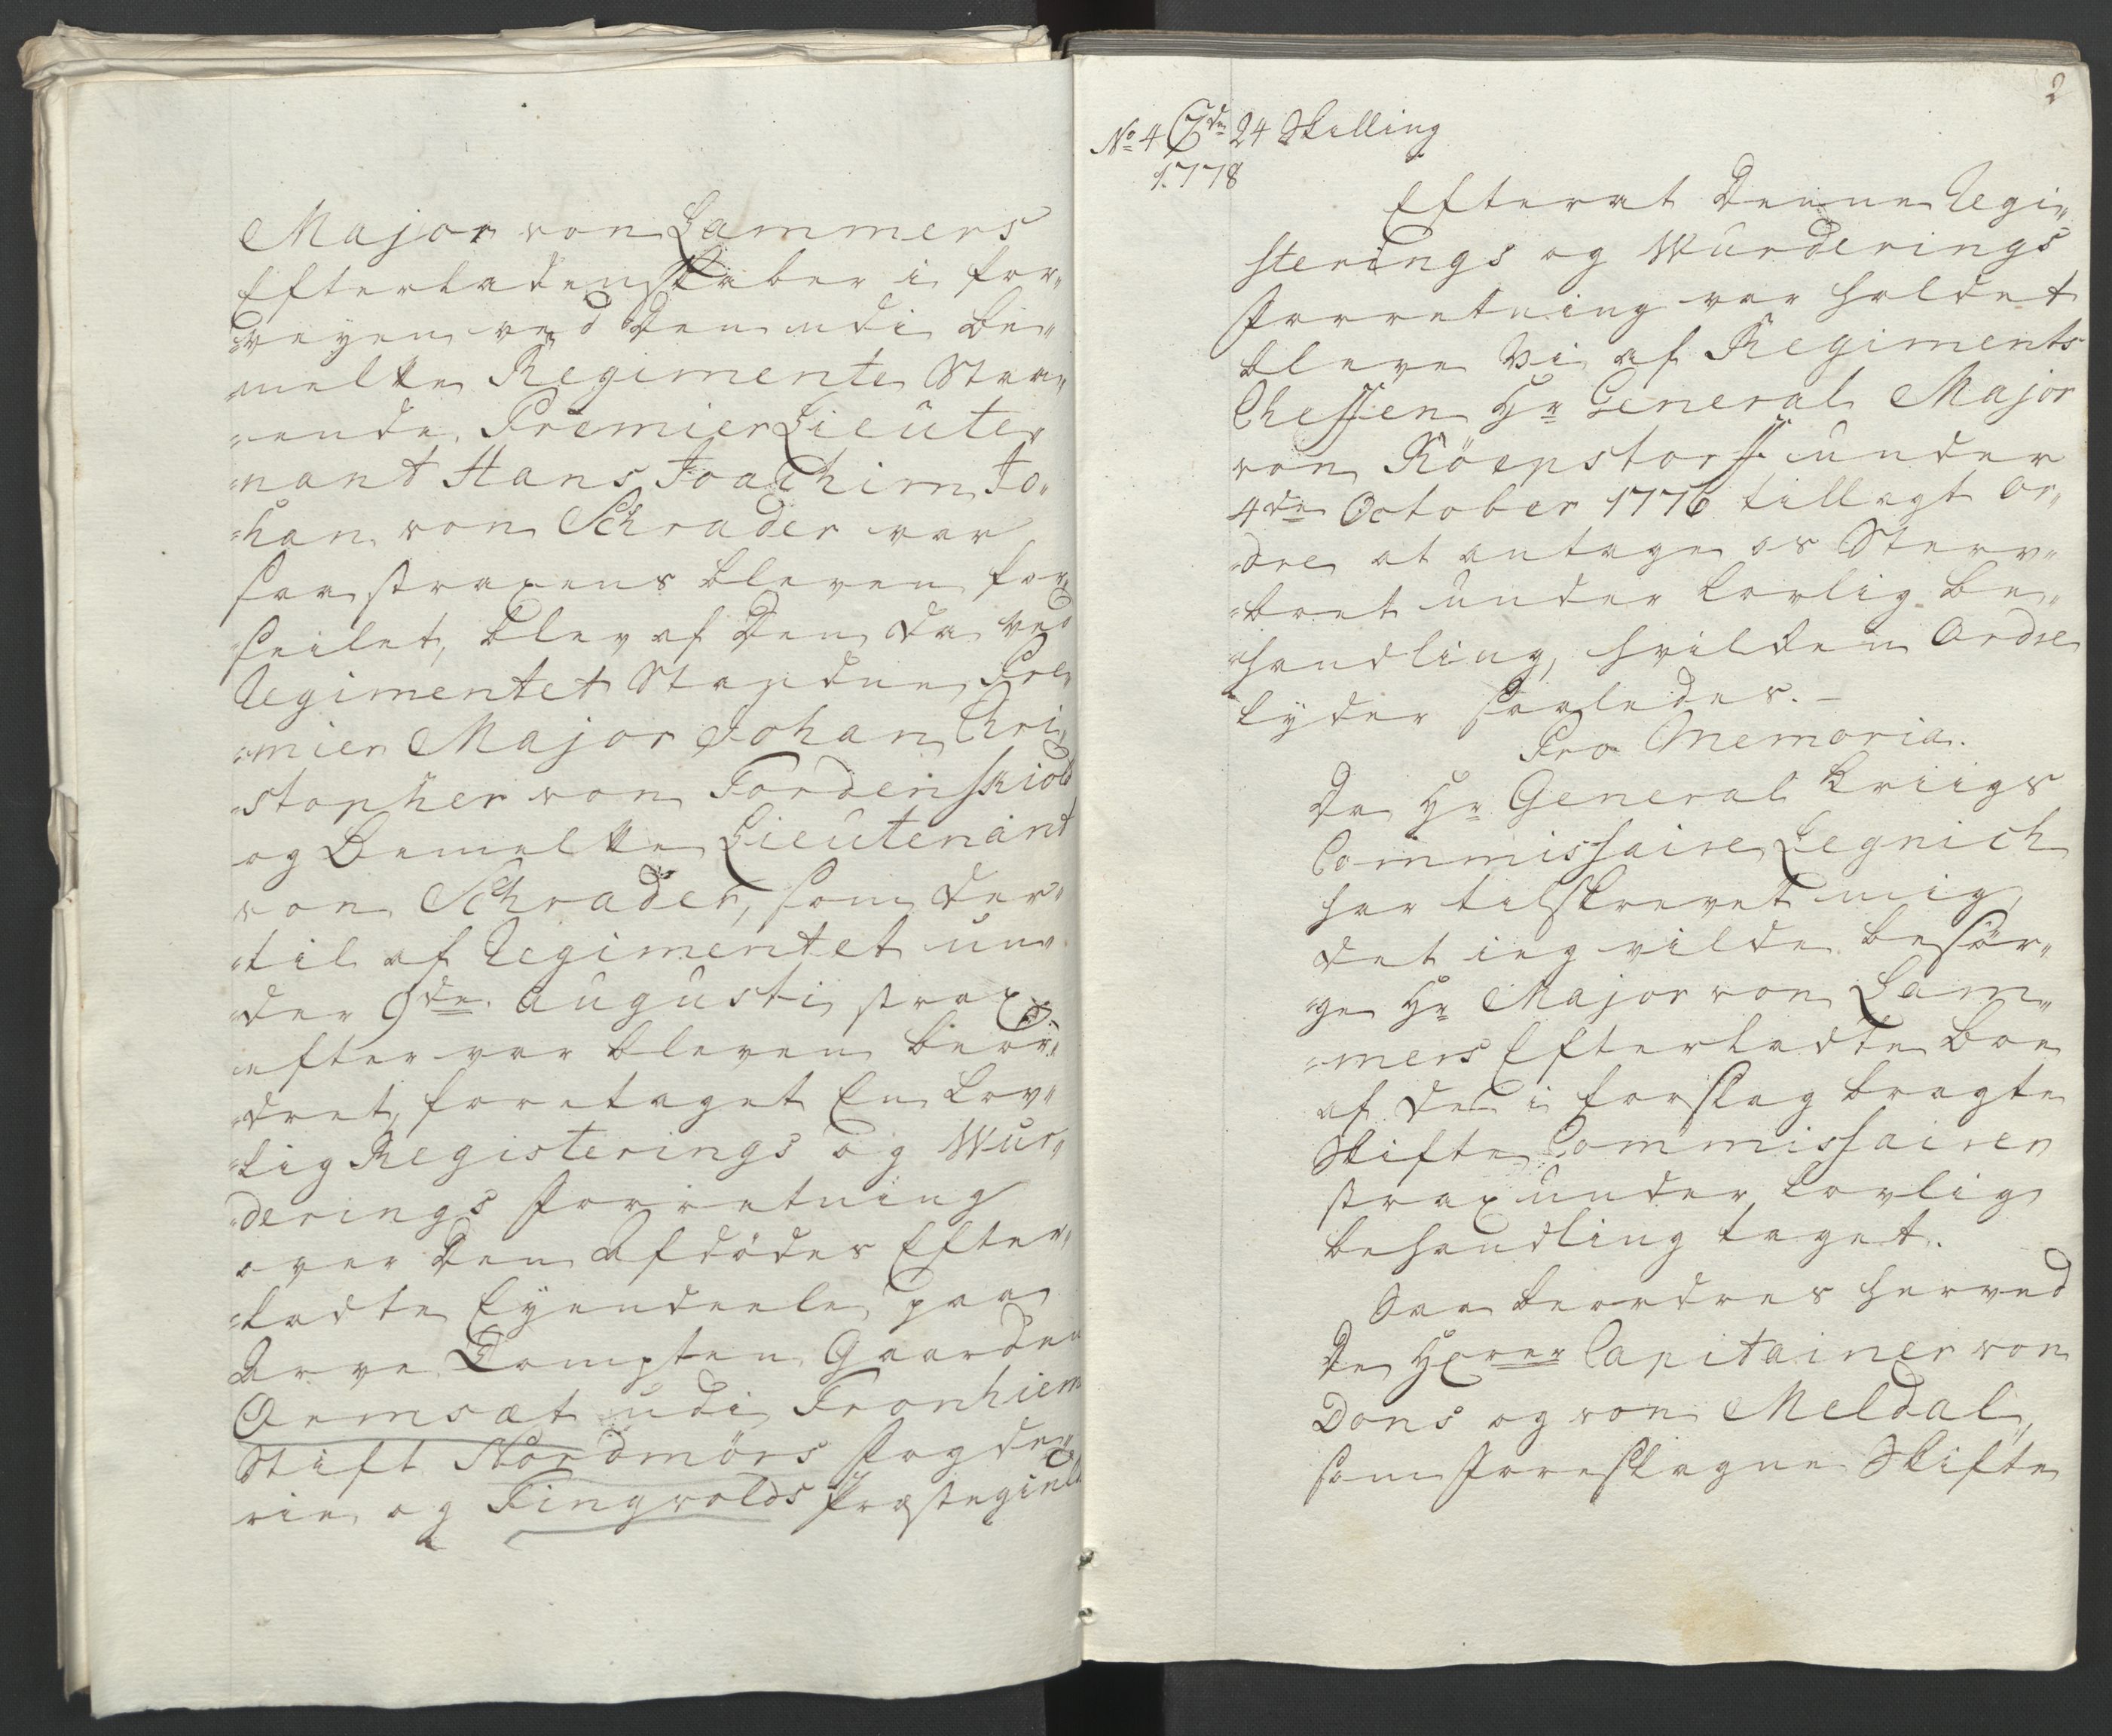 Major von Lammers
Efterladenskaber i for„
„veyen ved den udi be„
„melte Regimente Staa„
„ende Premier Lieute„
„nant Hans Joachim Jo„
„han von Schrader var
saa straxens bleven for„
„seilet, blev af den da ved
Regimentet Staaende Pre„
„mier Major Johan Chri„
„stopher von Tordenskiold
og Bemelte Lieutenant
von Schrader, som der„
„til af Regimentet un„
„der 9de augusti strax
efter var bleven beor„
„dret, foretaget En Lov„
„lig Registerings og Wur„
„derings Forretning
over den Afdödes Efter„
„ladte Eyendeele paa
Arve Tompten Gaarden
Ormsæt udi Tronhiems
Stift Nordmörs Fogde„
„rie, og Tingvolds Præstegield
2
No 4 Cl. de 24 Skilling
1778
Efterat denne Regi„
sterings og Wurderings
Forretning var holdet
bleve Vi af Regiments
Cheffen Hr General Major
von Röepstorff under
4de October 1776 tillagt Or„
„dre at antage os Sterv„
„boet under lovlig be„
„handling, hvilken Ordre
lyder saaledes. —
Pro Memoria.
Da Hr General Kriigs
Commissaire Legnich
har tilskrevet mig,
det ieg vilde besör„
„ge Hr Major von Lam„
„mers Efterladte Boe
af de i forslag bragte
Skifte Commissairer
strax under lovlig
behandling taget.
Saa beordres herved
De Herrer Capitainer von
Dons og von Meldal,
som foreslagne Skifte